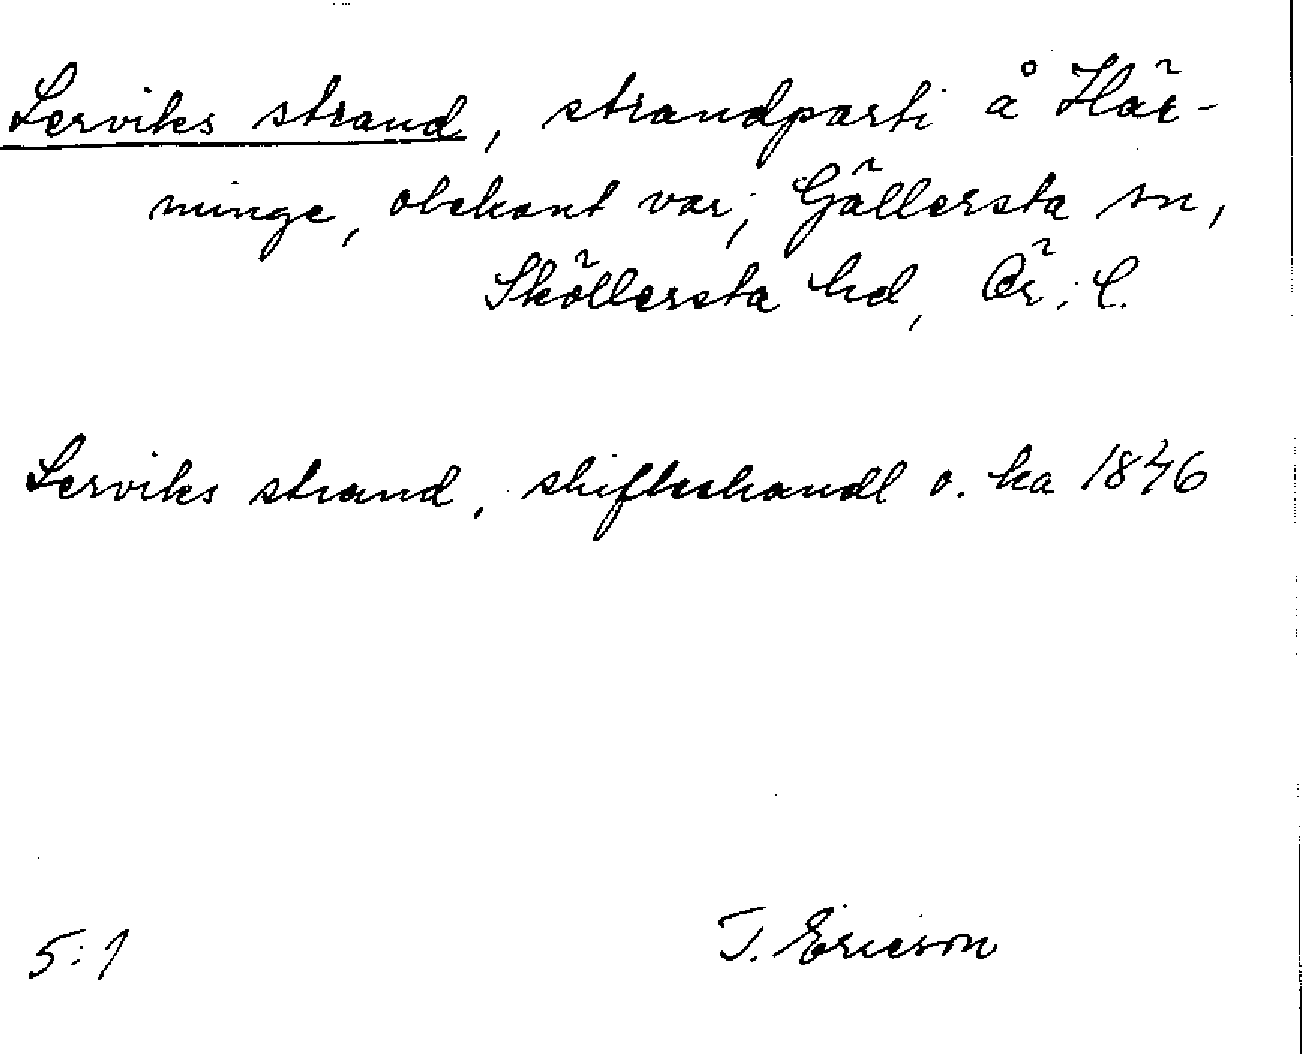 Lerviks strand, strandparti å Här-
ninge, obekant var; Gällersta sn,
Sköllersta hd, Ör. l.
Lerviks strand, skifteshandl o. ka 1846
5:1
T. Ericson